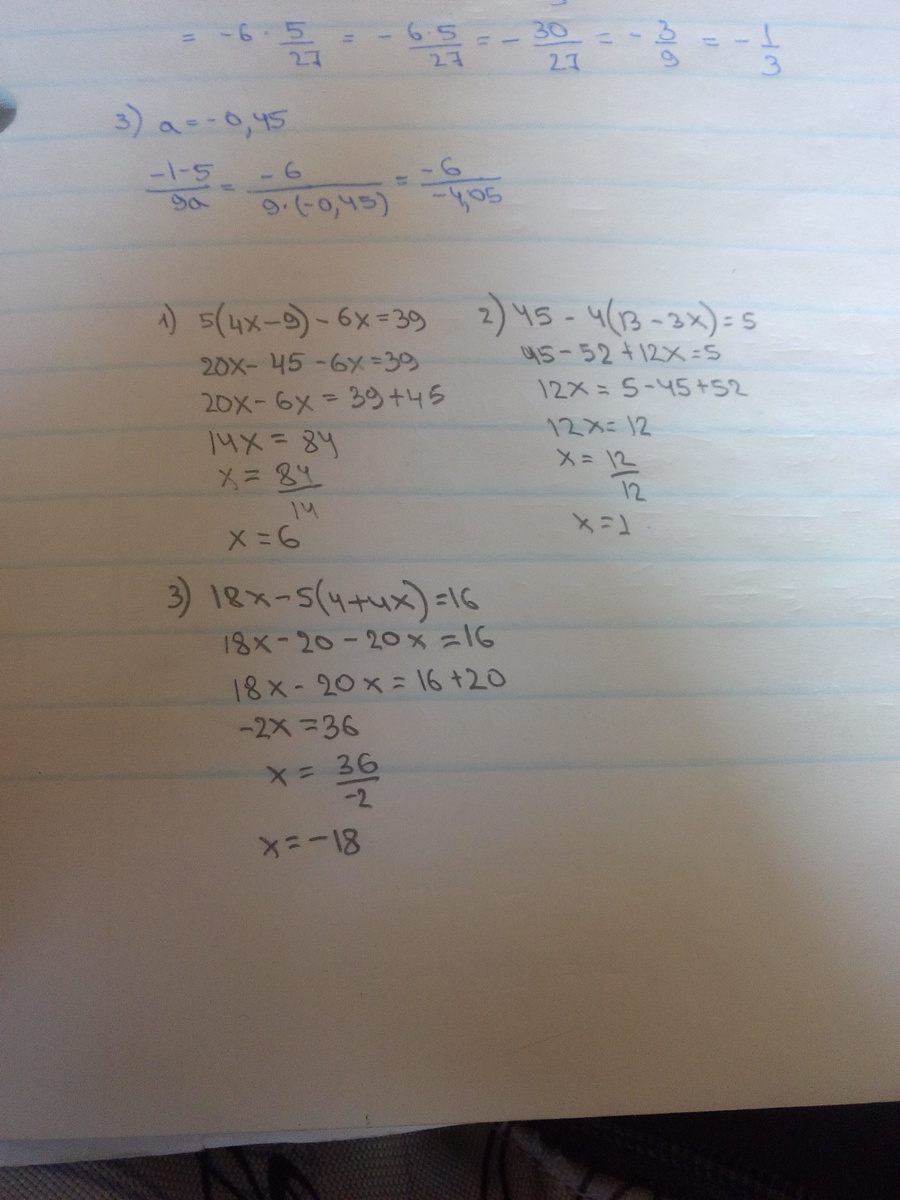 = -6 · 5/27 = - 6·5/27 = - 30/27 = - 3/9 = - 1/3
3) a = -0,45
-1-5/9a = -6/9·(-0,45) = -6/-4,05
1) 5(4x-9) - 6x = 39
20x - 45 - 6x = 39
20x - 6x = 39 + 45
14x = 84
x = 84/14
x = 6
2) 45 - 4(13 - 3x) = 5
45 - 52 + 12x = 5
12x = 5 - 45 + 52
12x = 12
x = 12/12
x = 1
3) 18x - 5(4+4x) = 16
18x - 20 - 20x = 16
18x - 20x = 16 + 20
-2x = 36
x = 36/-2
x = -18